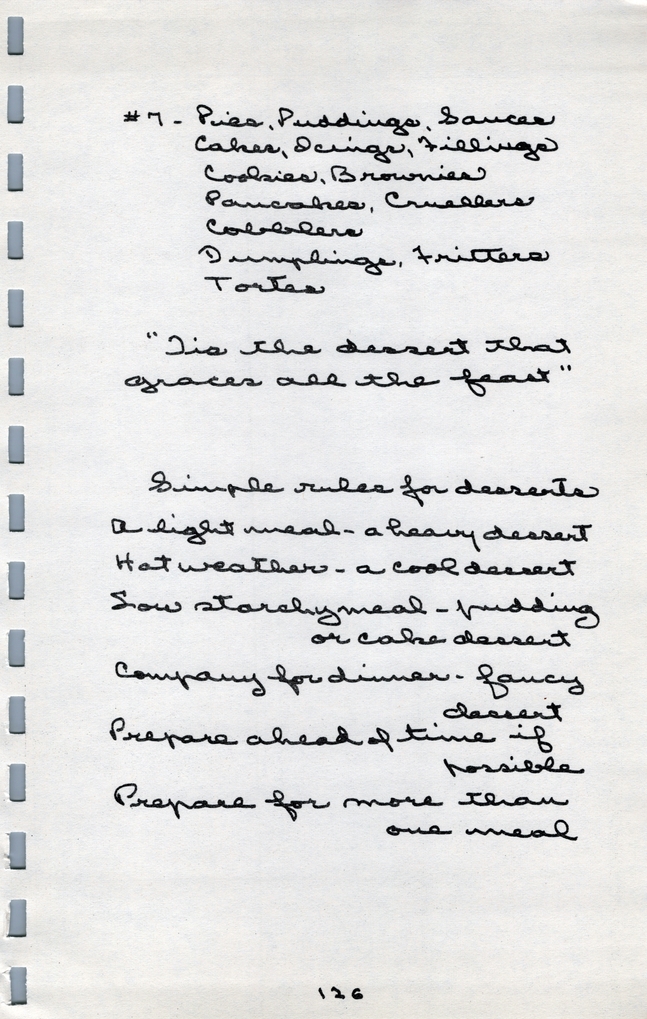 #7 - Pies, Puddings, Sauces
Cakes, Icings, Fillings
Cookies, Brownies
Pancakes, Cruellers
Cobblers
Dumplings, Fritters
Tortes
"Tis the dessert that
graces all the feast"
Simple rules for desserts
A light meal - a heavy dessert
Hot weather - a cool dessert
Low starchy meal - pudding
or cake dessert
Company for dinner - fancy
dessert
Prepare ahead of time if
possible
Prepare for more than
one meal
126